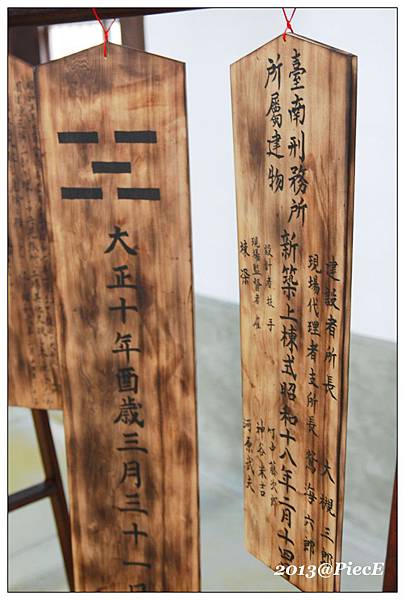 大正十年酉歲三月三十一日
臺南刑務所
所屬建物
新築上棟式昭和十八年二月十四
建設者所長 大槻三郎
現場代理者支所長 鷲海六郎
設計者技手 竹中藤次郎
現場監督者雇 神谷末吉
棟梁 河原武夫
2013@PiecE